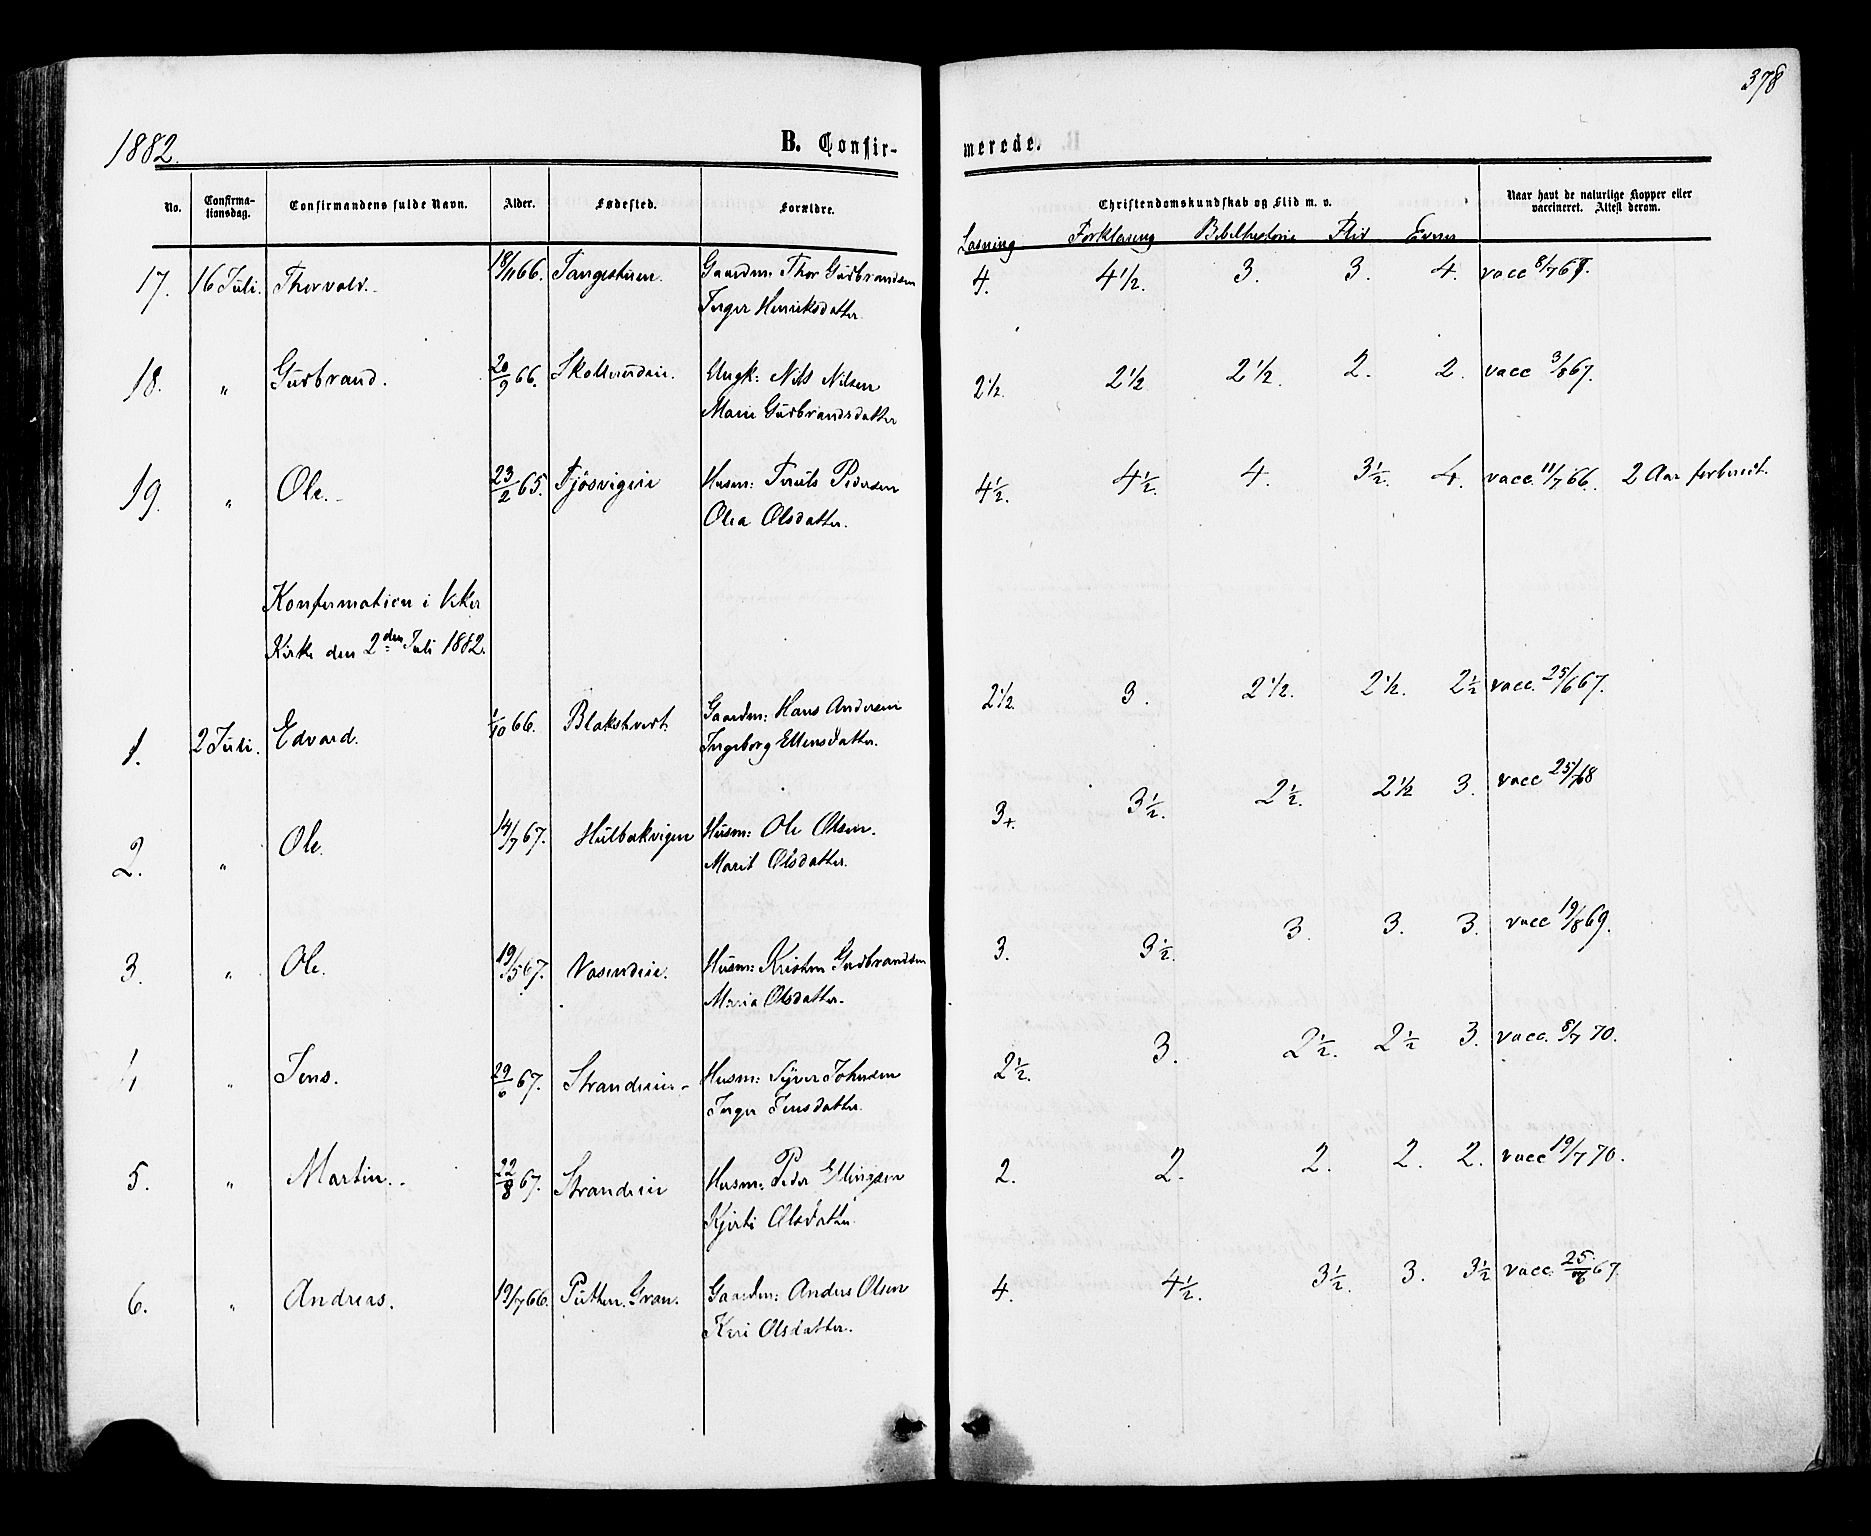 378
1882.
B. Confir-
merede.
No.
Confirma-
tionsdag.
Confirmandens fulde Navn.
Alder.
Fødested.
Forældre.
Christendomskundskab og Flid m. v.
Naar havt de naturlige Kopper eller
vaccineret. Attest derom.
Læsning Forklaring Bibelhistorie Flid Evner
17. 16 Juli. Thorvald. 18/11 66. Tangestuen. Gaardm: Thor Gudbrandsen 4. 4 1/2. 3. 3. 4. vacc 8/7 67.
Inger Henriksdatter
18. " Gudbrand. 20/9 66. Ungk: Nils Nilsen 2 1/2. 2 1/2 2 1/2. 2. 2. vacc 3/8 67.
Marie Gudbrandsdatter
19. " Ole. 23/2 65. Husm: Truls Pedersen 4 1/2. 4 1/2. 4. 3 1/2. 4. vacc. 11/7 66. 2 Aar forberedt.
Olea Olsdatter.
Konfirmation i Vker
Kirke den 2den Juli 1882.
1. 2 Juli. Edvard. 1/10 66. Blakstvert. Gaardm: Hans Andersen 2 1/2. 3. 2 1/2. 2 1/2. 2 1/2 vacc. 25/6 67.
Ingeborg Ellensdatter.
2. " Ole. 14/7 67. Hulbakvigen Husm: Ole Olsen. 3+. 3 1/2. 2 1/2. 2 1/2 3. vacc 25/7 68
Marit Olsdatter.
3. " Ole. 19/5 67. Vasendeie. Husm: Kristen Gudbrandsen 3. 3 1/2. 3. 3. 3. vacc 19/8 69.
Maria Olsdatter.
4 " Jens. 29/6 67. Strandeie Husm: Syver Johnsen 2 1/2. 3. 2 1/2. 2 1/2 3. vacc. 8/7 70.
Inger Jensdatter.
5. " Martin. 22/8 67. Strandeie Husm: Peder Ellingsen 2. 2. 2. 2. 2. vacc 19/7 70.
Kjersti Olsdatter.
6. " Andreas. 19/7 66. Putten. Gran. Gaardm: Anders Olsen 4. 4 1/2. 3 1/2. 3. 3 1/2 vacc. 25/6 67.
Kari Olsdatter.